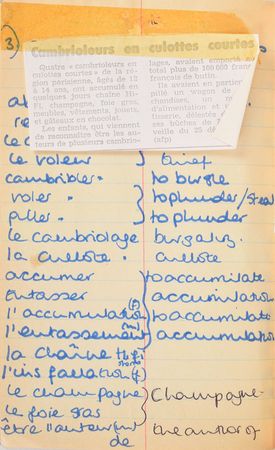 3)
Cambrioleurs en culottes courtes
Quatre « cambrioleurs en
culottes courtes » de la ré-
gion parisienne, âgés de 12
à 14 ans, ont accumulé en
quelques jours chaîne Hi-
Fi, champagne, foie gras,
meubles, vêtements, jouets,
et gâteaux en chocolat.
Les enfants, qui viennent
de reconnaître être les au-
teurs de plusieurs cambrio-
lages, avaient emporté
total plus de 100 000 franc
français de butin.
Ils avaient en partie
pillé un wagon de
chandises, un m
d'alimentation et
tisserie, délesté
ses bûches de
veille du 25 dé
(afp)
le voleur thief
cambrioler to burgle
voler to plunder/steal
piller to plunder
le cambriolage burgalry
la culotte culotte
accumer to accumilate
entasser accumulation
l'accumulation (f) to accumulate
l'entassement (m) accumulation
la chaîne Hi-fi
l'installation (f)
le champagne Champagne
le foie gras
être l'auteur (m) the author of
de